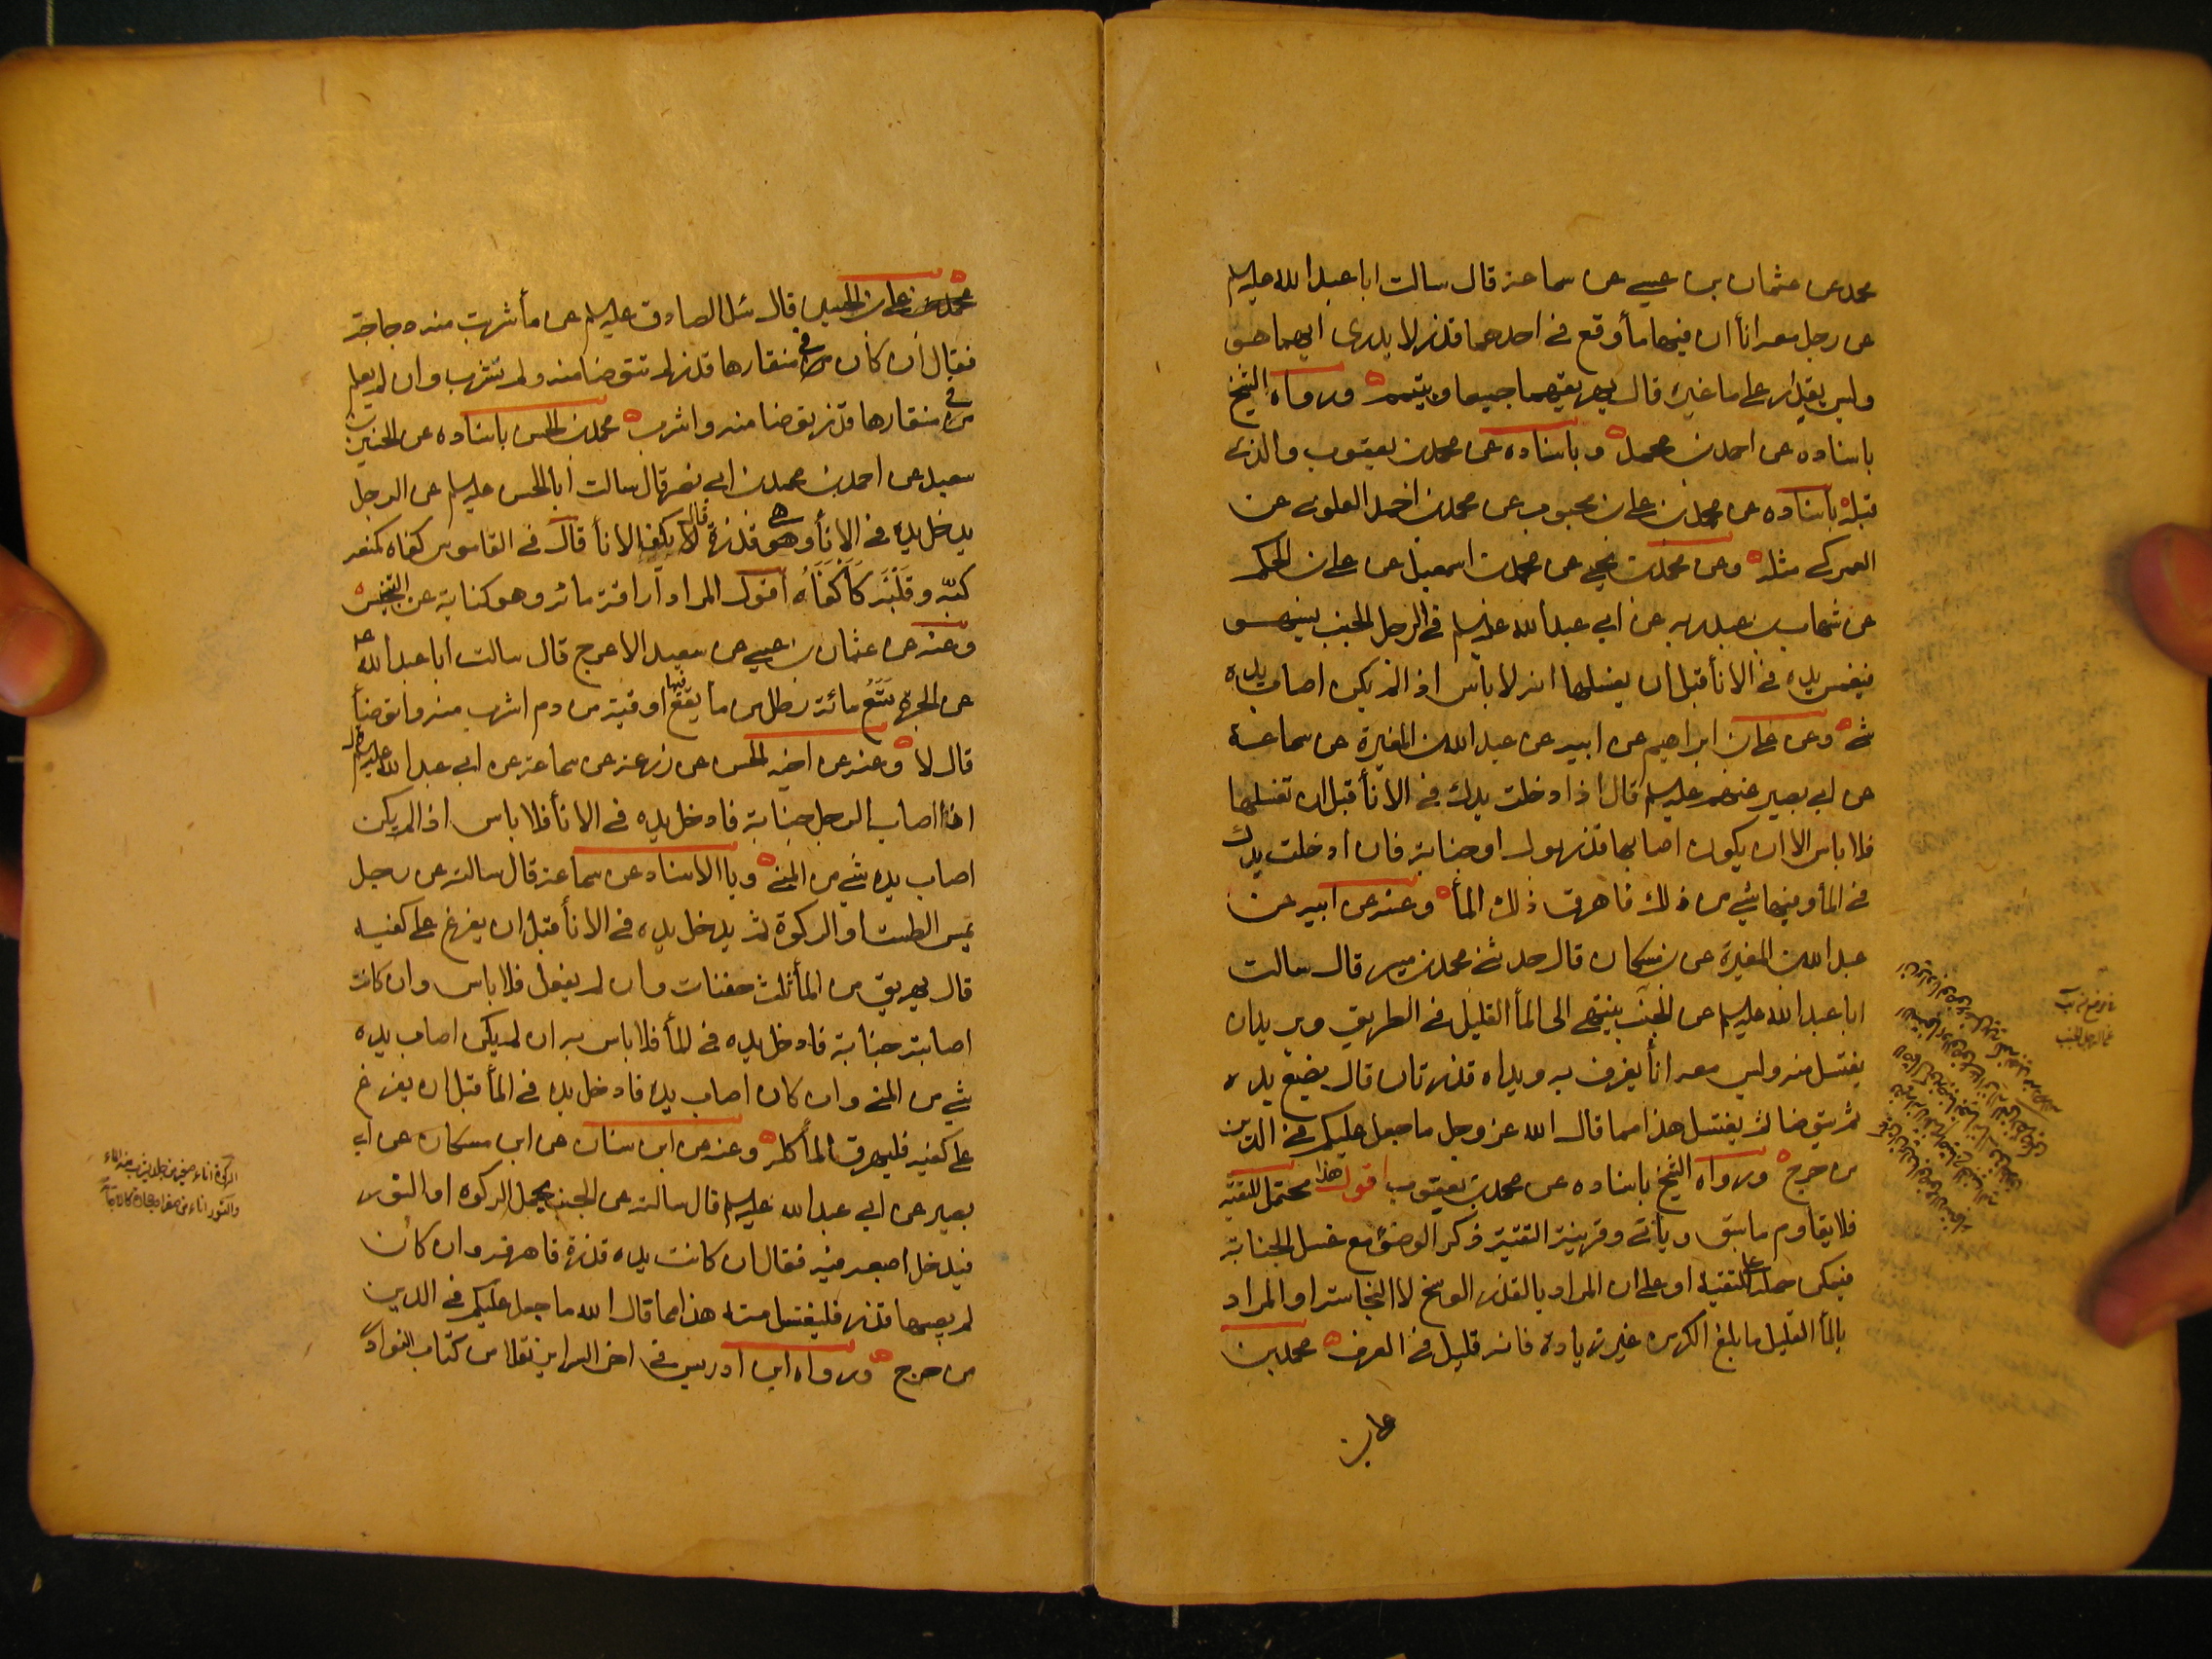 محمد عن عثمان بن عيسى عن سماعة قال سالت ابا عبد الله عليه السلم
عن رجل معه اناأن فيهما مأ وقع في احدهما قذر لا يدرى ايهما هو
وليس يقدر على ما غيره قال يهريقهما جميعا ويتيمم ورواه الشيخ
باسناده عن احمد بن محمد وباسناده عن محمد بن يعقوب والذى
قبله باسناده عن محمد بن على بن محبوب عن محمد بن احمد العلوى عن
العمركى مثله وعن محمد بن يحيى عن محمد بن اسمعيل عن على بن الحكم
عن شهاب بن عبد ربه عن ابى عبد الله عليه السلم فى الرجل الجنب يسهو
فيغمس يده فى الانأ قبل ان يغسلها انه لا باس اذا لم يكن اصاب يده
شئ وعن على بن ابراهيم عن ابيه عن عبد الله بن المغيرة عن سماعة
عن ابى بصير عنهم عليهم السلم قال اذا دخلت يدك فى الانأ قبل ان تغسلها
فلا باس الا ان يكون اصابها قذر بول او جنابة فان ادخلت يدك
فى المأ وفيها شئ من ذلك فاهرق ذلك المأ وعنه عن ابيه عن
عبد الله بن المغيرة عن بن مسكان قال حدثنى محمد بن ميسر قال سالت
ابا عبد الله عليه السلم عن الجنب ينتهى الى المأ القليل فى الطريق ويريد ان
يغتسل منه وليس معه انأ يغرف به ويداه قذرتان قال يضع يده
ثم يتوضا ثم يغتسل هذا مما قال الله عز وجل ما جعل عليكم فى الدين
من حرج ورواه الشيخ باسناده عن محمد بن يعقوب اقول هذا محتمل للتقية
فلا يقاوم ما سبق ويأتى وقرينة التقية ذكر الوضؤ مع غسل الجنابة
فيمكن حمله على التقية او على ان المراد بالقذر الوسخ لا النجاسة او المراد
بالمأ القليل ما بلغ الكر من غير زيادة فانه قليل فى العرف محمد بن
على بن
محمد بن على بن الحسين قال سئل الصادق عليه السلم عن مأ شربت منه دجاجة
فقال ان كان فى منقارها قذر لم تتوضا منه ولم تشرب وان لم يعلم
فى منقارها قذر توضا منه واشرب محمد بن الحسن باسناده عن الحسين بن
سعيد عن احمد بن محمد بن ابى نصر قال سالت ابا الحسن عليه السلم عن الرجل
يدخل يده فى الانأ وهى قذرة قال يكفئ الانأ قال فى القاموس كفاه كمنعه
كبه وقلبه كأكفأه اقول المراد اراقة مائه وهو كناية عن التنجيس
وعنه عن عثمان بن عيسى عن سعيد الاعرج قال سالت ابا عبد الله ع
عن الجرة تسع مائة رطل من ما يقع فيها اوقية من دم اشرب منه واتوضأ
قال لا وعنه عن اخيه الحسن عن زرعة عن سماعة عن ابى عبد الله عليه السلم قال
اذا اصاب الرجل جنابة فادخل يده فى الانأ فلا باس اذا لم يكن
اصاب يده شئ من المنى وبالاسناد عن سماعة قال سالته عن رجل
يمس الطست او الركوة ثم يدخل يده فى الانأ قبل ان يفرغ على كفيه
قال يهريق من المأ ثلث حفنات وان لم يفعل فلا باس وان كانت
اصابته جنابة فادخل يده فى المأ فلا باس به ان لم يكن اصاب يده
شئ من المنى وان كان اصاب يده فادخل يده فى المأ قبل ان يفرغ
على كفيه فليهرق المأ كله وعنه عن ابن سنان عن ابن مسكان عن ابى
بصير عن ابى عبد الله عليه السلم قال سالته عن الجنب يحمل الركوة او التور
فيدخل اصبعه فيه فقال ان كانت يده قذرة فاهرقه وان كان
لم يصبها قذر فليغتسل منه هذا مما قال الله ما جعل عليكم فى الدين
من حرج ورواه ابن ادريس فى اخر السراير نقلا من كتاب النوادر
الركوة اناء صغير من جلد يشرب فيه الماء
والتور اناء من صفر او حجارة كالاجانة